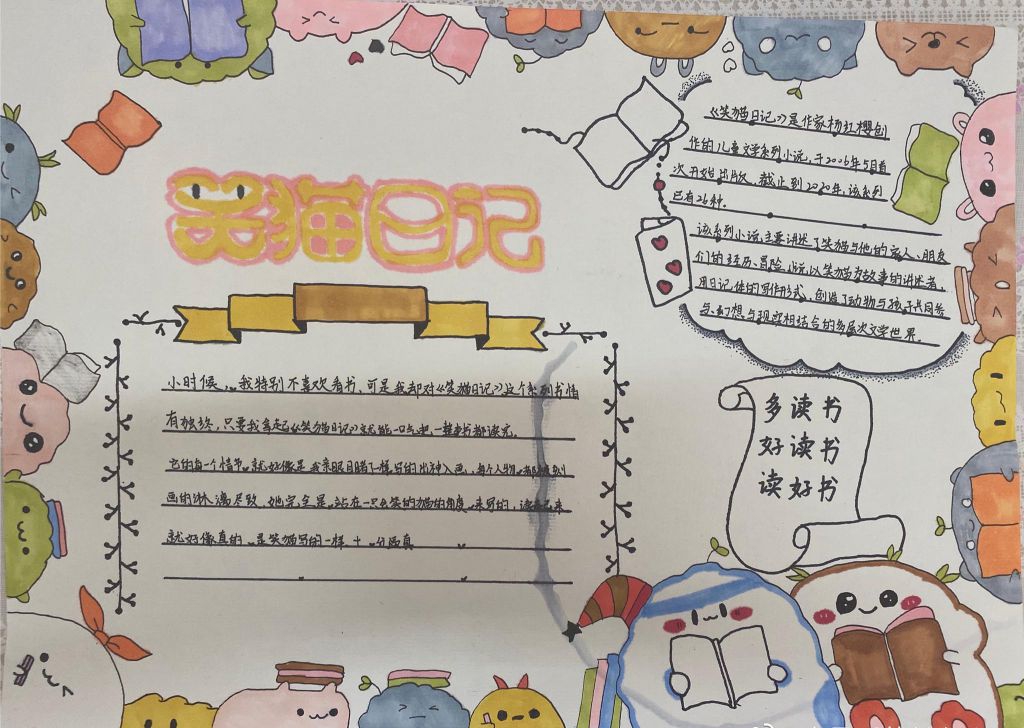 笑猫日记
《笑猫日记》是作家杨红樱创
作的儿童文学系列小说,于2006年5月首
次开始出版,截止到2020年,该系列
已有26种.
该系列小说,主要讲述了笑猫与他的家人、朋友
们的经历、冒险,以笑猫为故事的讲述者,
用日记体的写作形式,创造了动物与孩子共同参
与,幻想与现实相结合的多层次文学世界.
小时候,我特别不喜欢看书,可是我却对《笑猫日记》这个系列书情
有独终,只要我拿起《笑猫日记》就能一口气把一整本书都读完.
它的每一个情节,就好像是我亲眼目睹了一样写的出神入画,每个人物都被刻
画的淋漓尽致,她完全是站在一只会笑的猫的角度来写的,读起来
就好像真的是笑猫写的一样十分逼真
多读书
好读书
读好书